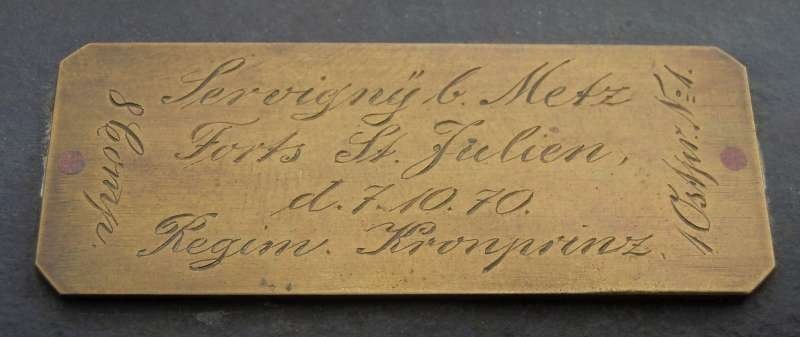 Servignÿ b. Metz
Forts St. Julien,
d. 7. 10. 70.
Regim. Kronprinz.
8 Comp.
1 Ostpr. No 1.